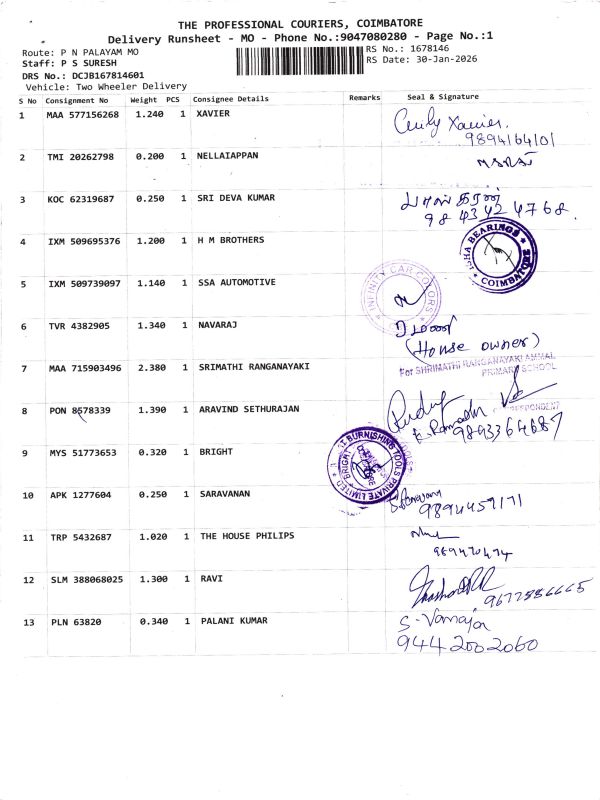 THE PROFESSIONAL COURIERS, COIMBATORE
Delivery Runsheet - MO - Phone No.:9047080280 - Page No.:1
Route: P N PALAYAM MO
RS No.: 1678146
Staff: P S SURESH
RS Date: 30-Jan-2026
DRS No.: DCJB167814601
Vehicle: Two Wheeler Delivery
S No Consignment No Weight PCS Consignee Details Remarks Seal & Signature
1 MAA 577156268 1.240 1 XAVIER Xavier.
9894164101
2 TMI 20262798 0.200 1 NELLAIAPPAN
3 KOC 62319687 0.250 1 SRI DEVA KUMAR பாஸ்கரன்
98 43424768.
4 IXM 509695376 1.200 1 H M BROTHERS BEARINGS COIMBATORE
5 IXM 509739097 1.140 1 SSA AUTOMOTIVE INFINITY CAR COLORS
6 TVR 4382905 1.340 1 NAVARAJ ரமணி
(House owner)
7 MAA 715903496 2.380 1 SRIMATHI RANGANAYAKI For SHRIMATHI RANGANAYAKI AMMAL
PRIMARY SCHOOL
CORRESPONDENT
8 PON 8578339 1.390 1 ARAVIND SETHURAJAN
9893364687
9 MYS 51773653 0.320 1 BRIGHT BRIGHT BURNISHING TOOLS PRIVATE LIMITED
10 APK 1277604 0.250 1 SARAVANAN
9894459171
11 TRP 5432687 1.020 1 THE HOUSE PHILIPS
12 SLM 388068025 1.300 1 RAVI
9677556665
13 PLN 63820 0.340 1 PALANI KUMAR S-Vanaja
944 200 2060